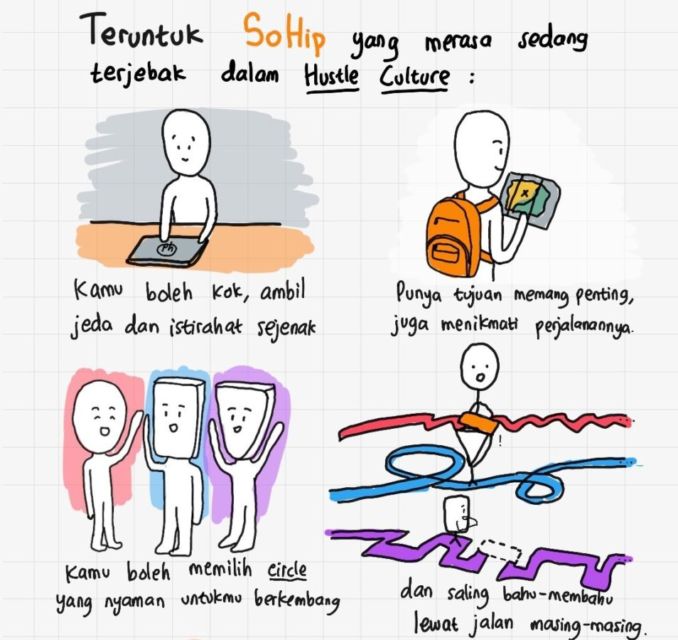 Teruntuk SoHip yang merasa sedang
terjebak dalam Hustle Culture :
Ph
Kamu boleh kok, ambil
jeda dan istirahat sejenak
Punya tujuan memang penting,
juga menikmati perjalanannya.
x
Kamu boleh memilih circle
yang nyaman untukmu berkembang
!
dan saling bahu-membahu
lewat jalan masing-masing.